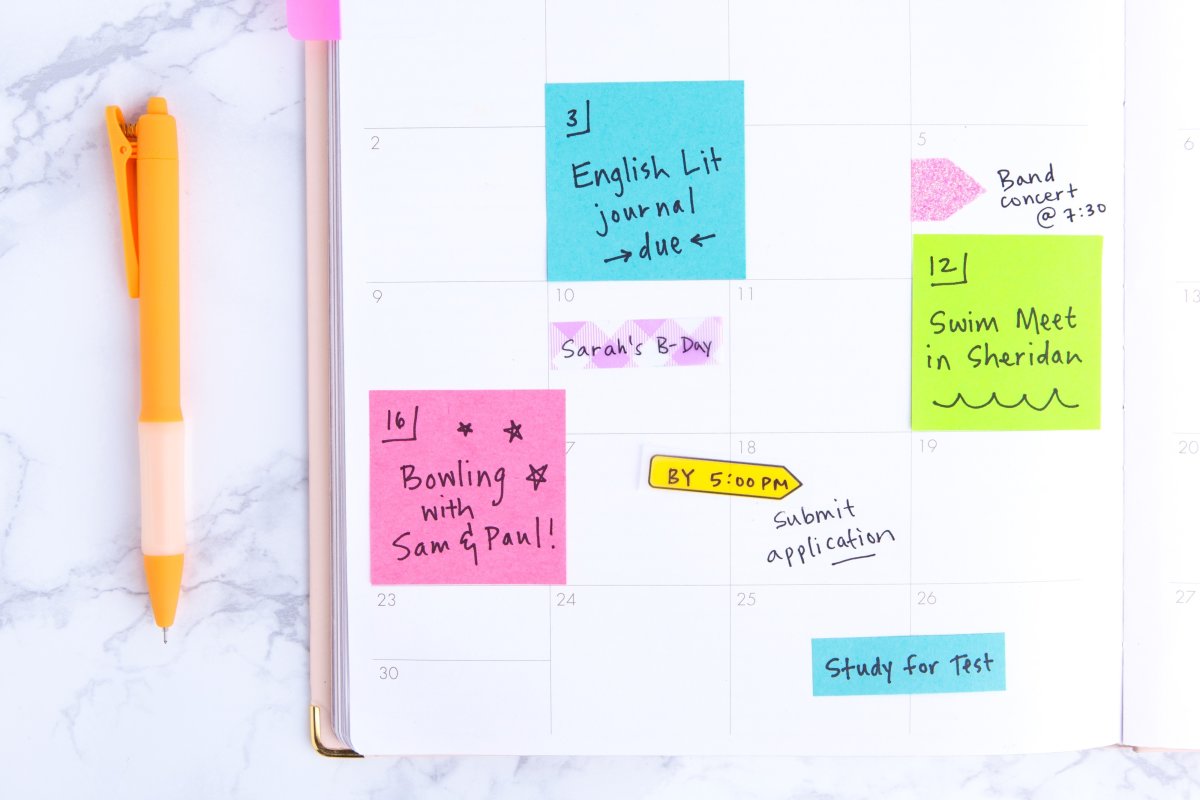 2
3
English Lit
journal
→due←
5
Band
concert
@ 7:30
6
9
10
Sarah's B-Day
11
12
Swim Meet
in Sheridan
13
16
Bowling
with
Sam & Paul!
7
BY 5:00 PM
18
Submit
application
19
20
23
24
25
26
Study for Test
27
30